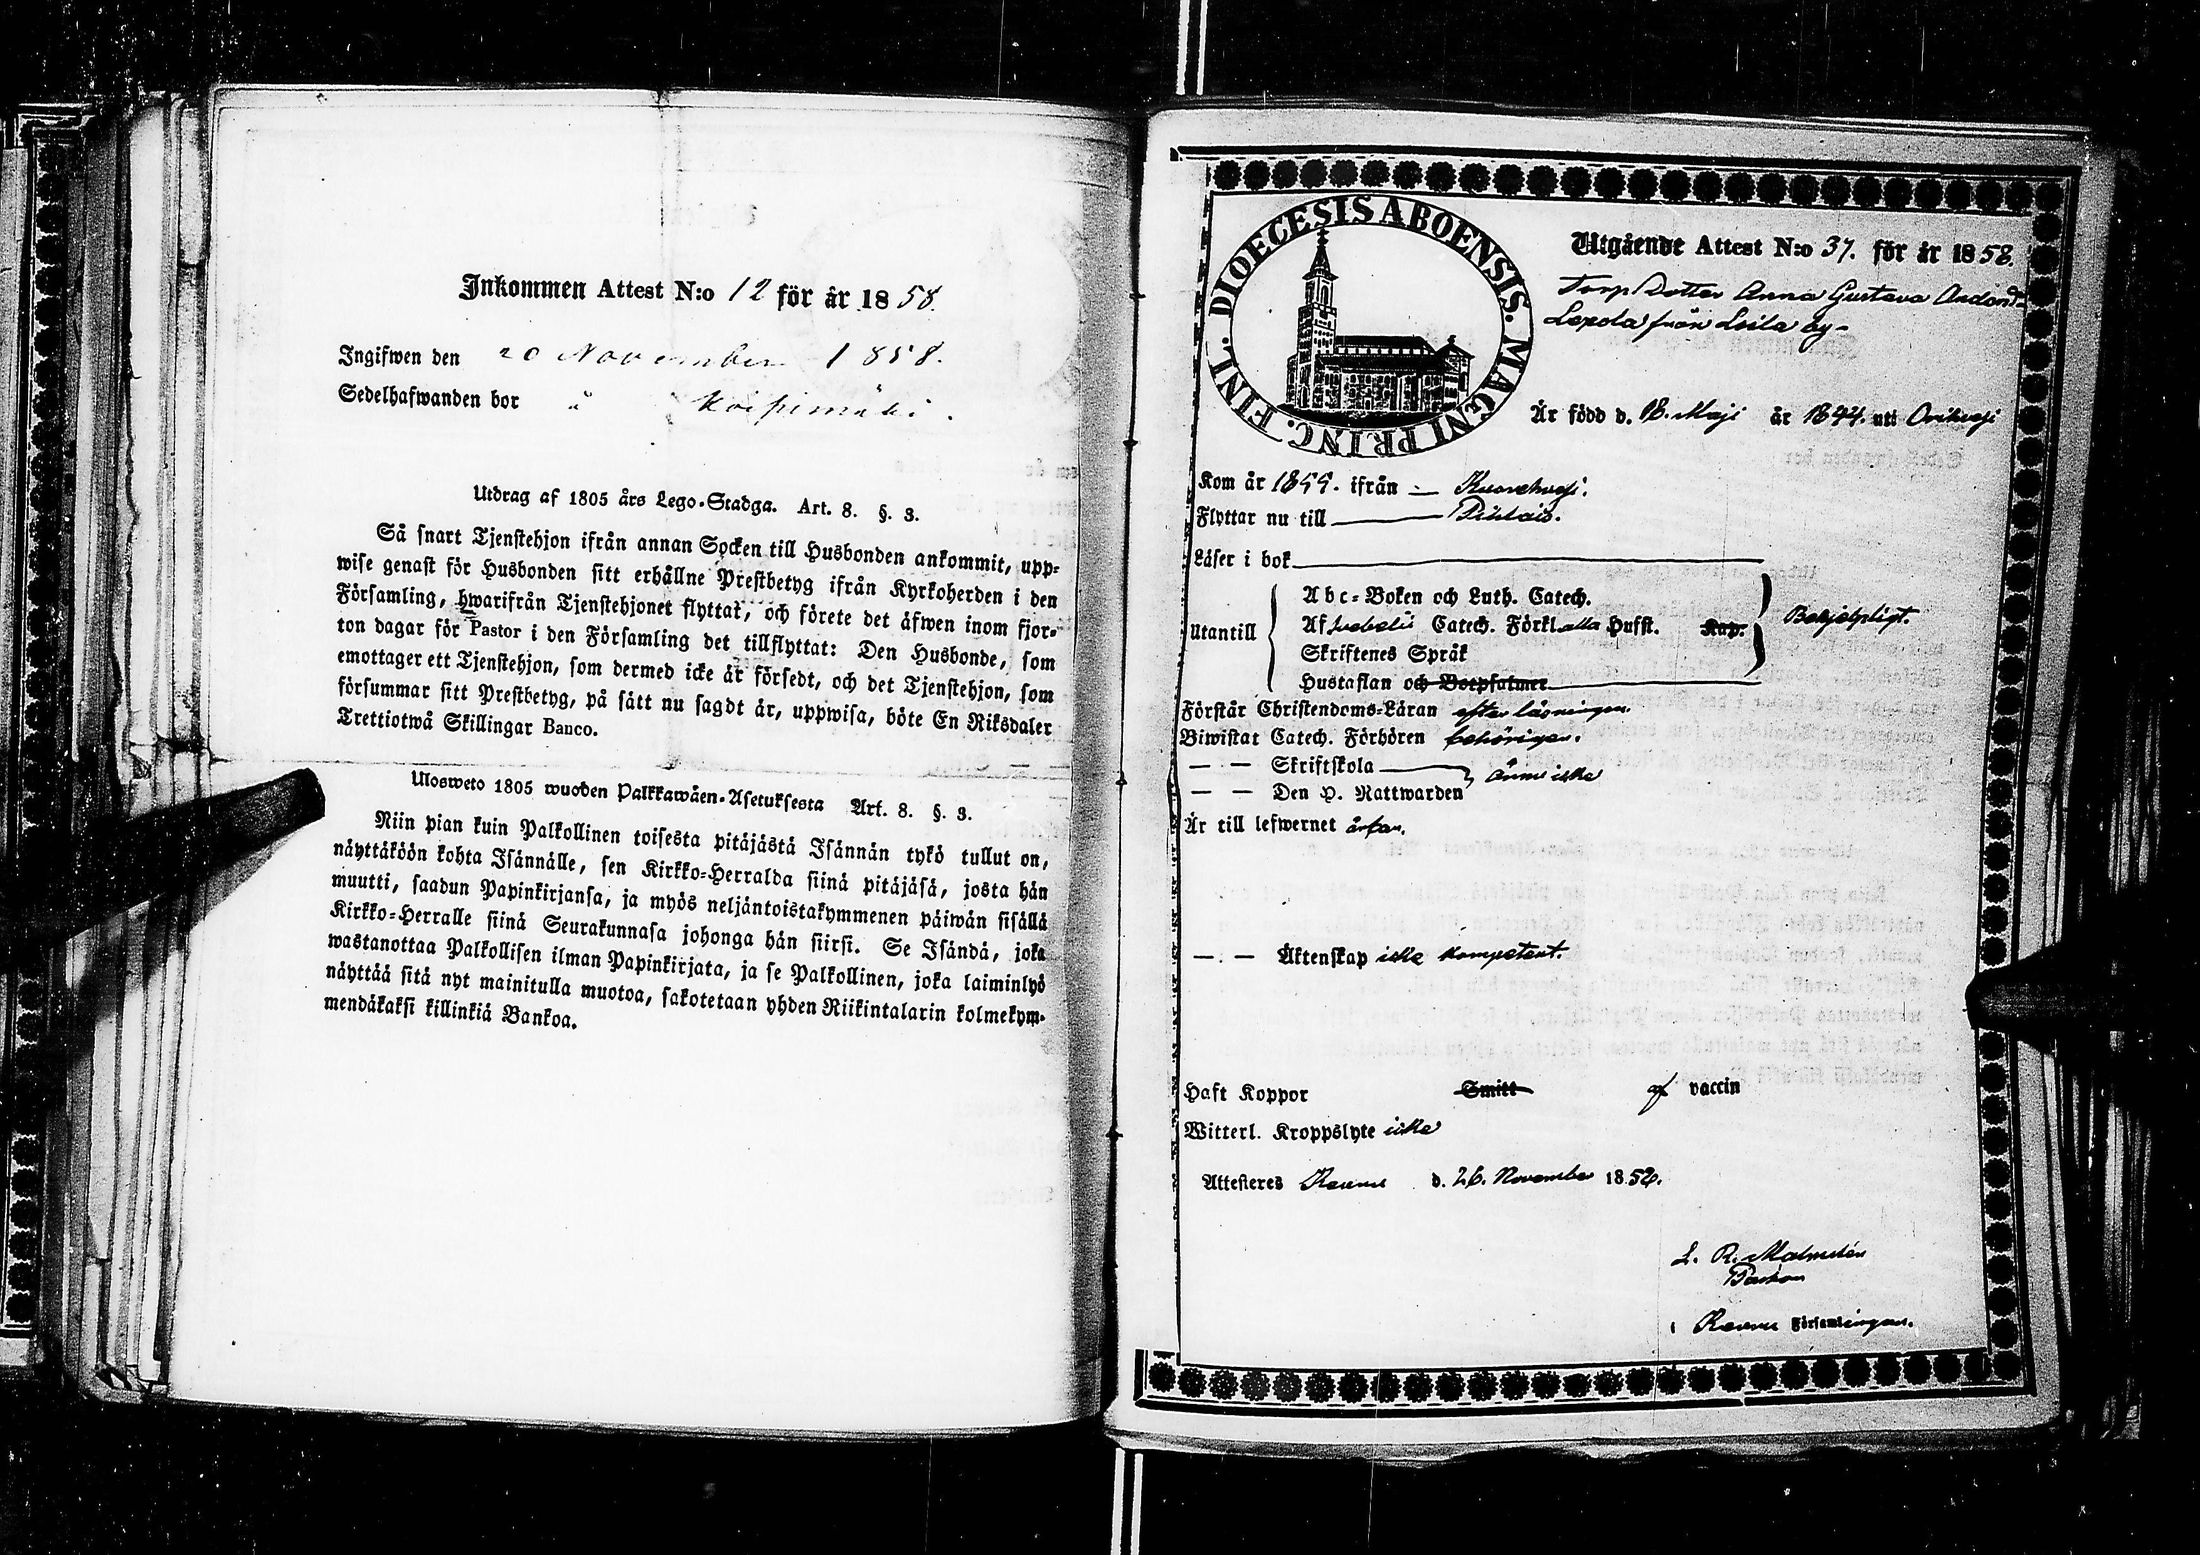 Inkommen Attest N:o 12 för år 1858.
Ingifwen den 20 November 1858.
Sedelhafwanden bor å Koipimäki.
Utdrag af 1805 års Lego-Stadga. Art. 8. §. 3.
Så snart Tjenstehjon ifrån annan Socken till Husbonden ankommit, upp-
wise genast för Husbonden sitt erhållne Prestbetyg ifrån Kyrkoherden i den
Församling, hwarifrån Tjenstehjonet flyttat, och förete det äfwen inom fjor-
ton dagar för Pastor i den Församling det tillflyttat: Den Husbonde, som
emottager ett Tjenstehjon, som dermed icke är försedt, och det Tjenstehjon, som
försummar sitt Prestbetyg, på sätt nu sagdt är, uppwisa, böte En Riksdaler
Trettiotwå Skillingar Banco.
Ulosweto 1805 wuoden Palkkawäen-Asetuksesta Art. 8. §. 3.
Niin pian kuin Palkollinen toisesta pitäjästä Isännän tykö tullut on,
näyttäköön kohta Isännälle, sen Kirkko-Herralda siinä pitäjäsä, josta hän
muutti, saadun Papinkirjansa, ja myös neljäntoistakymmenen päiwän sisällä
Kirkko-Herralle siinä Seurakunnasa johonga hän siirsi. Se Isändä, joka
wastanottaa Palkollisen ilman Papinkirjata, ja se Palkollinen, joka laiminlyö
näyttää sitä nyt mainitulla muotoa, sakotetaan yhden Riikintalarin kolmekym-
mendäkaksi killinkiä Bankoa.
DIOECESIS ABOENSIS. MAGNI PRINC. FINL.
Utgående Attest N:o 37. för år 1858.
Torp Dotter Anna Gustava
Lepola från Loila by-
Är född d. 18. Maji år 1844. uti Orihvesi
Kom år 1855. ifrån — Kuorehvesi.
Flyttar nu till — Pihlais.
Läser i bok
Utantill
Abc-Boken och Luth. Catech.
Af Svebelii Catech. Förkl. alla Hufst. Kap.
Skriftenes Språk
Hustaflan och Botpsalmer
Behjelpligt.
Förstår Christendoms-Läran efter läsningen.
Biwistat Catech. Förhören behörigen.
— — Skriftskola
— — Den H. Nattwarden
ännu icke
Är till lefwernet ärbar.
— — Äktenskap icke kompetent.
Haft Koppor Smitt af vaccin
Witterl. Kroppslyte icke
Attesteres Keuru d. 26. November 1858.
L. R. Malmstén
Pastor
i Keuru Församlingen.